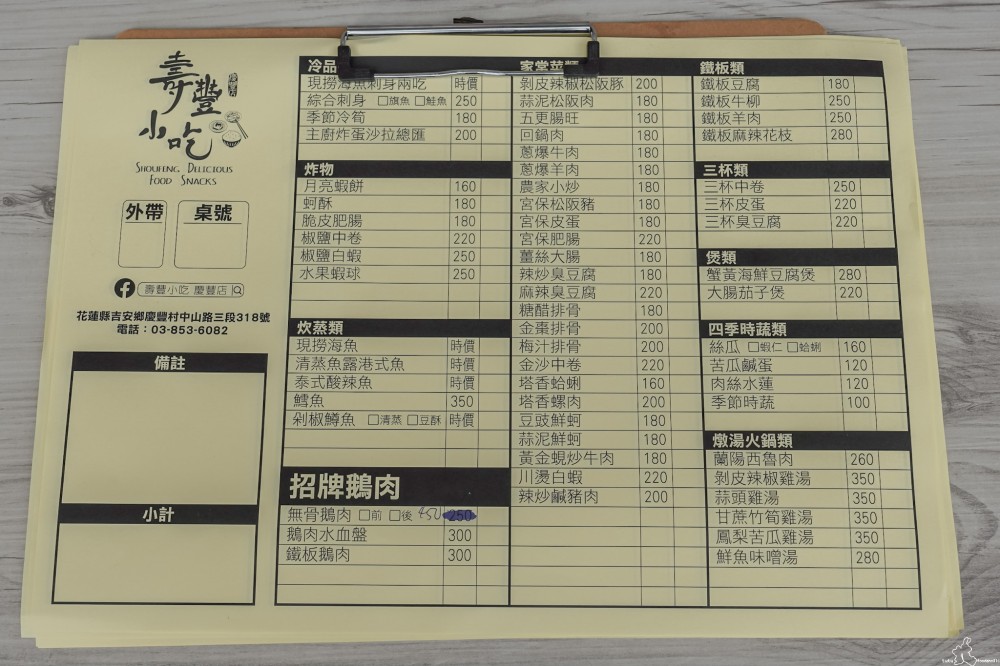 壽豐
小吃
SHOUFENG DELICIOUS
FOOD SNACKS
外帶
桌號
壽豐小吃 慶豐店
花蓮縣吉安鄉慶豐村中山路三段318號
電話：03-853-6082
備註
小計
冷品
現撈海魚刺身兩吃 時價
綜合刺身 □旗魚 □鮭魚 250
季節冷筍 180
主廚炸蛋沙拉總匯 200
炸物
月亮蝦餅 160
蚵酥 180
脆皮肥腸 180
椒鹽中卷 220
椒鹽白蝦 250
水果蝦球 250
炊蒸類
現撈海魚 時價
清蒸魚露港式魚 時價
泰式酸辣魚 時價
鱈魚 350
剁椒鱒魚 □清蒸 □豆酥 時價
招牌鵝肉
無骨鵝肉 □前 □後 450 250
鵝肉水血盤 300
鐵板鵝肉 300
家常菜類
剝皮辣椒松阪豚 200
蒜泥松阪肉 180
五更腸旺 180
回鍋肉 180
蔥爆牛肉 180
蔥爆羊肉 180
農家小炒 180
宮保松阪豬 180
宮保皮蛋 180
宮保肥腸 220
薑絲大腸 180
辣炒臭豆腐 180
麻辣臭豆腐 220
糖醋排骨 180
金棗排骨 200
梅汁排骨 200
金沙中卷 220
塔香蛤蜊 160
塔香螺肉 200
豆豉鮮蚵 180
蒜泥鮮蚵 180
黃金蜆炒牛肉 180
川燙白蝦 220
辣炒鹹豬肉 200
鐵板類
鐵板豆腐 180
鐵板牛柳 250
鐵板羊肉 250
鐵板麻辣花枝 280
三杯類
三杯中卷 250
三杯皮蛋 220
三杯臭豆腐 220
煲類
蟹黃海鮮豆腐煲 280
大腸茄子煲 220
四季時蔬類
絲瓜 □蝦仁 □蛤蜊 160
苦瓜鹹蛋 120
肉絲水蓮 120
季節時蔬 100
燉湯火鍋類
蘭陽西魯肉 260
剝皮辣椒雞湯 350
蒜頭雞湯 350
甘蔗竹筍雞湯 350
鳳梨苦瓜雞湯 350
鮮魚味噌湯 280